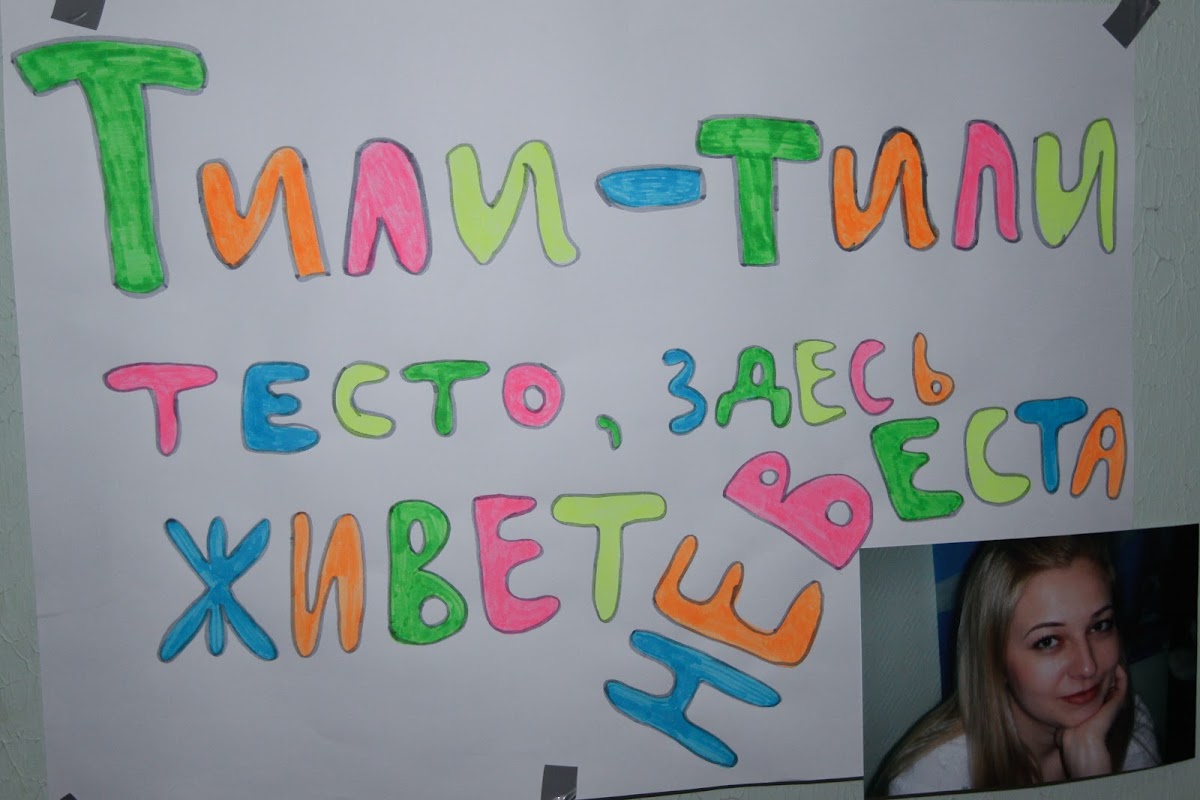 Тили-тили
тесто, здесь
живет невеста